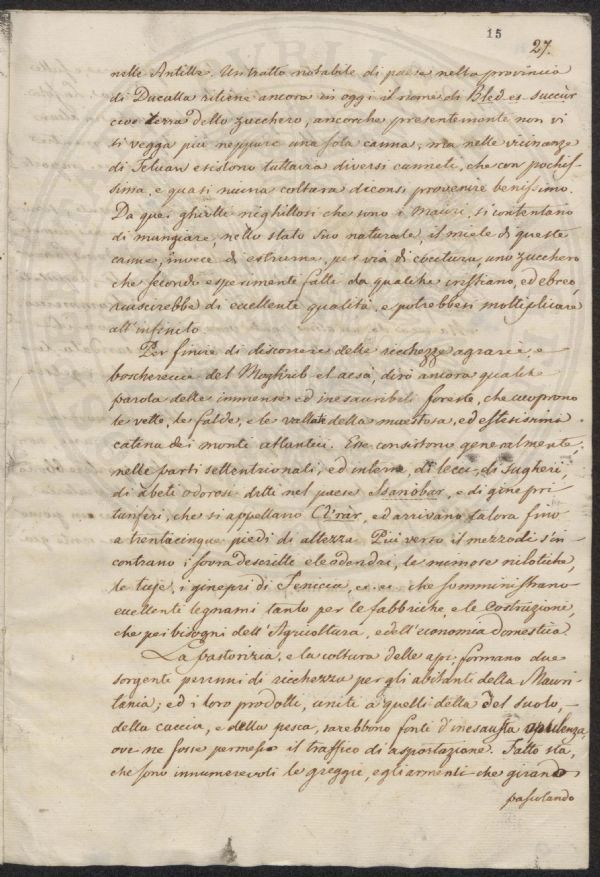 15
27.
nelle Antille. Un tratto notabile di paese nella provincia
di Ducalla ritiene ancora in oggi il nome di Bled-es-succùr
cioè terra dello zucchero, ancorchè presentemente non vi
si vegga più neppure una sola canna; ma nelle vicinanze
di Tetuan esistono tuttavia diversi canneti, che con pochis-
sima, e quasi niuna coltura diconsi provenire benissimo.
Da que' ghiotti nighittosi che sono i Mauri, si contentano
di mangiare, nello stato suo naturale, il miele di queste
canne, invece di estrarne, per via di cocitura, uno zucchero
che secondo esperimenti fatti da qualche cristiano, ed ebreo,
riuscirebbe di eccellente qualità, e potrebbesi moltiplicare
all'infinito.
Per finire di discorrere delle ricchezze agrarie, e
boscherecce del Moghrib el acsà, dirò ancora qualche
parola delle immense ed inesauribili foreste, che cuoprono
le vette, le falde, e le vallate della maestosa, ed estesissima
catena dei monti atlantici. Esse consistono generalmente,
nelle parti settentrionali, ed interne, di lecci, di sugheri,
di abeti odorosi detti nel paese Ssanóbar, e di ginepri
turiferi, che si appellano El'rár, ed arrivano talora fino
a trentacinque piedi di altezza. Più verso il mezzodì s'in-
contrano i sovradescritte eleodendri, le mimose nilotiche,
le tuje, i ginepri di Fenicia, ec. ec. che somministrano
eccellenti legnami tanto per le fabbriche, e le costruzioni,
che pei bisogni dell'Agricoltura, e dell'economia domestica.
La pastorizia, e la coltura delle api formano due
sorgenti perenni di ricchezza per gli abitanti della Mauri-
tania; ed i loro prodotti, uniti a quelli della del suolo,
della caccia, e della pesca, sarebbono fonti d'inesausta opulenza,
ove ne fosse permesso il traffico di asportazione. Fatto sta,
che sono innumerevoli le greggie, e gli armenti che girando
pasculando